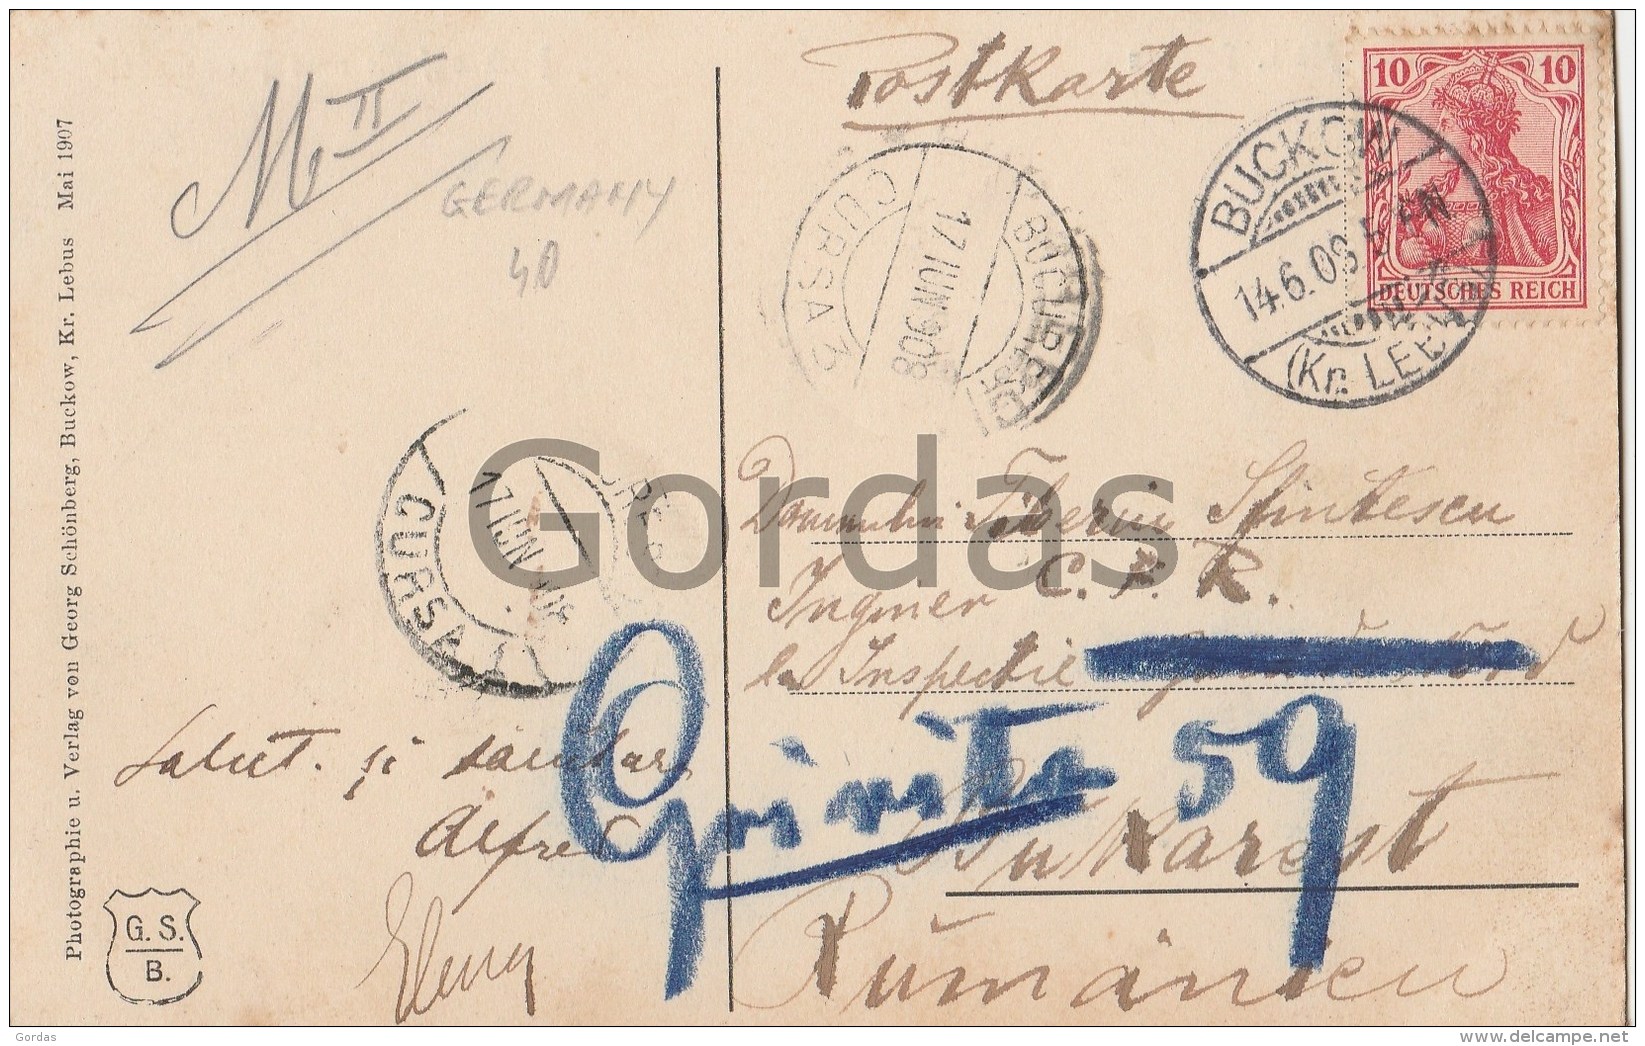 Postkarte
M II
GERMANY
40
10 10
DEUTSCHES REICH
BUCKOW
14.6.08. 5-6 N
(Kr. LEBUS)
BUCUREŞTI
17 IUN 908
CURSA 3
17 IUN 908
CURSA
Domnului Tiberiu Stintescu
Inginer C. F. R.
la Inspectie
Grivita 59
Bukarest
Rumänien
Salut. şi sarutare
Alfred
Elena
Photographie u. Verlag von Georg Schönberg, Buckow, Kr. Lebus Mai 1907
G. S.
B.
Gordas
Gordas
delcampe.net